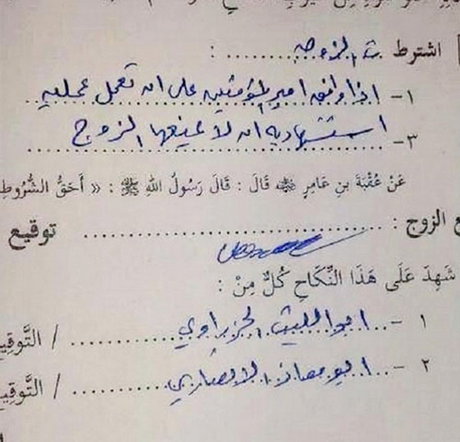 اشترطت الزوجه :
١- اذا وافق امير المؤمنين على ان تعمل عمليه
٣- استشهاديه ان لا يمنعها الزوج
عَنْ عُقْبَةَ بنِ عَامِرٍ ﷺ قَالَ : قَالَ رَسُولُ اللهِ ﷺ : « أَحَقُّ الشُّرُوطِ
ع الزوج : توقيع
شَهِدَ عَلَى هَذَا النِّكَاحِ كُلٌّ مِنْ :
١ - ابو الليث الجزراوي / التَّوقِيع
٢ - ابو مصعب الانصاري / التَّوقِيع